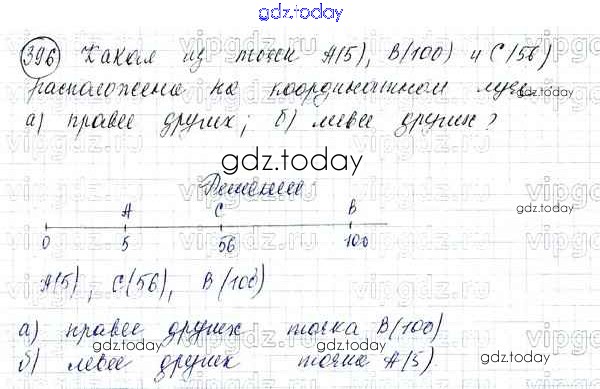 gdz.today
396 Какая из точек A(5), B(100) и C(56)
расположена на координатном луче
а) правее других; б) левее других?
gdz.today
Решение
A C B
0 5 56 100
A(5), C(56), B(100)
а) правее других точка B(100)
б) левее других точка A(5).